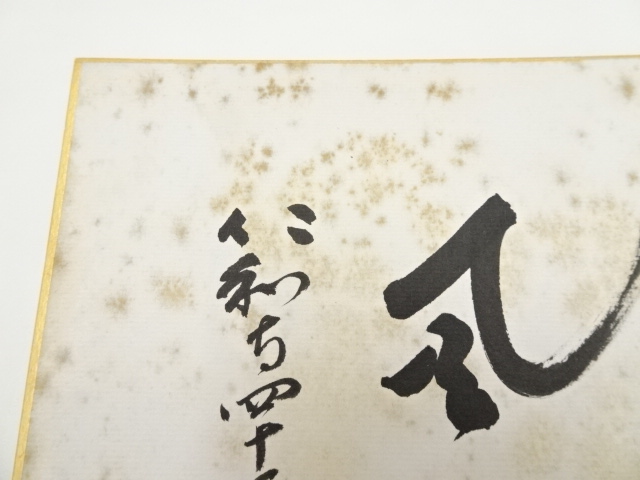 風
仁和寺四十